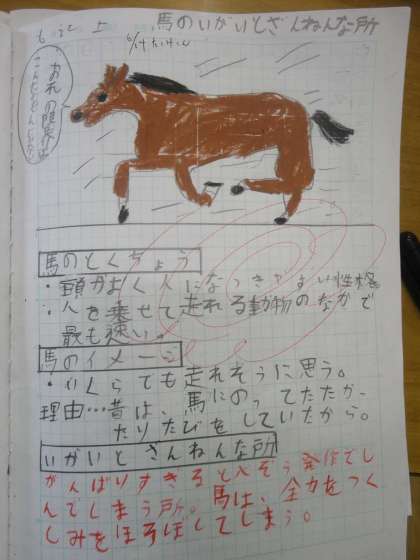 馬のいがいとざんねんな所
おれの限界は
こんなもんじゃない
馬のとくちょう
・頭がよく人になつきやすい性格
・人を乗せて走れる動物のなかで
最も速い。
馬のイメージ
・いくらでも走れそうに思う。
理由…昔は、馬にのってたたか
たりたびをしていたから。
いがいとざんねんな所
がんばりすぎると心ぞう発作でし
んでしまう所。馬は、全力をつく
しみをほろぼしてしまう。